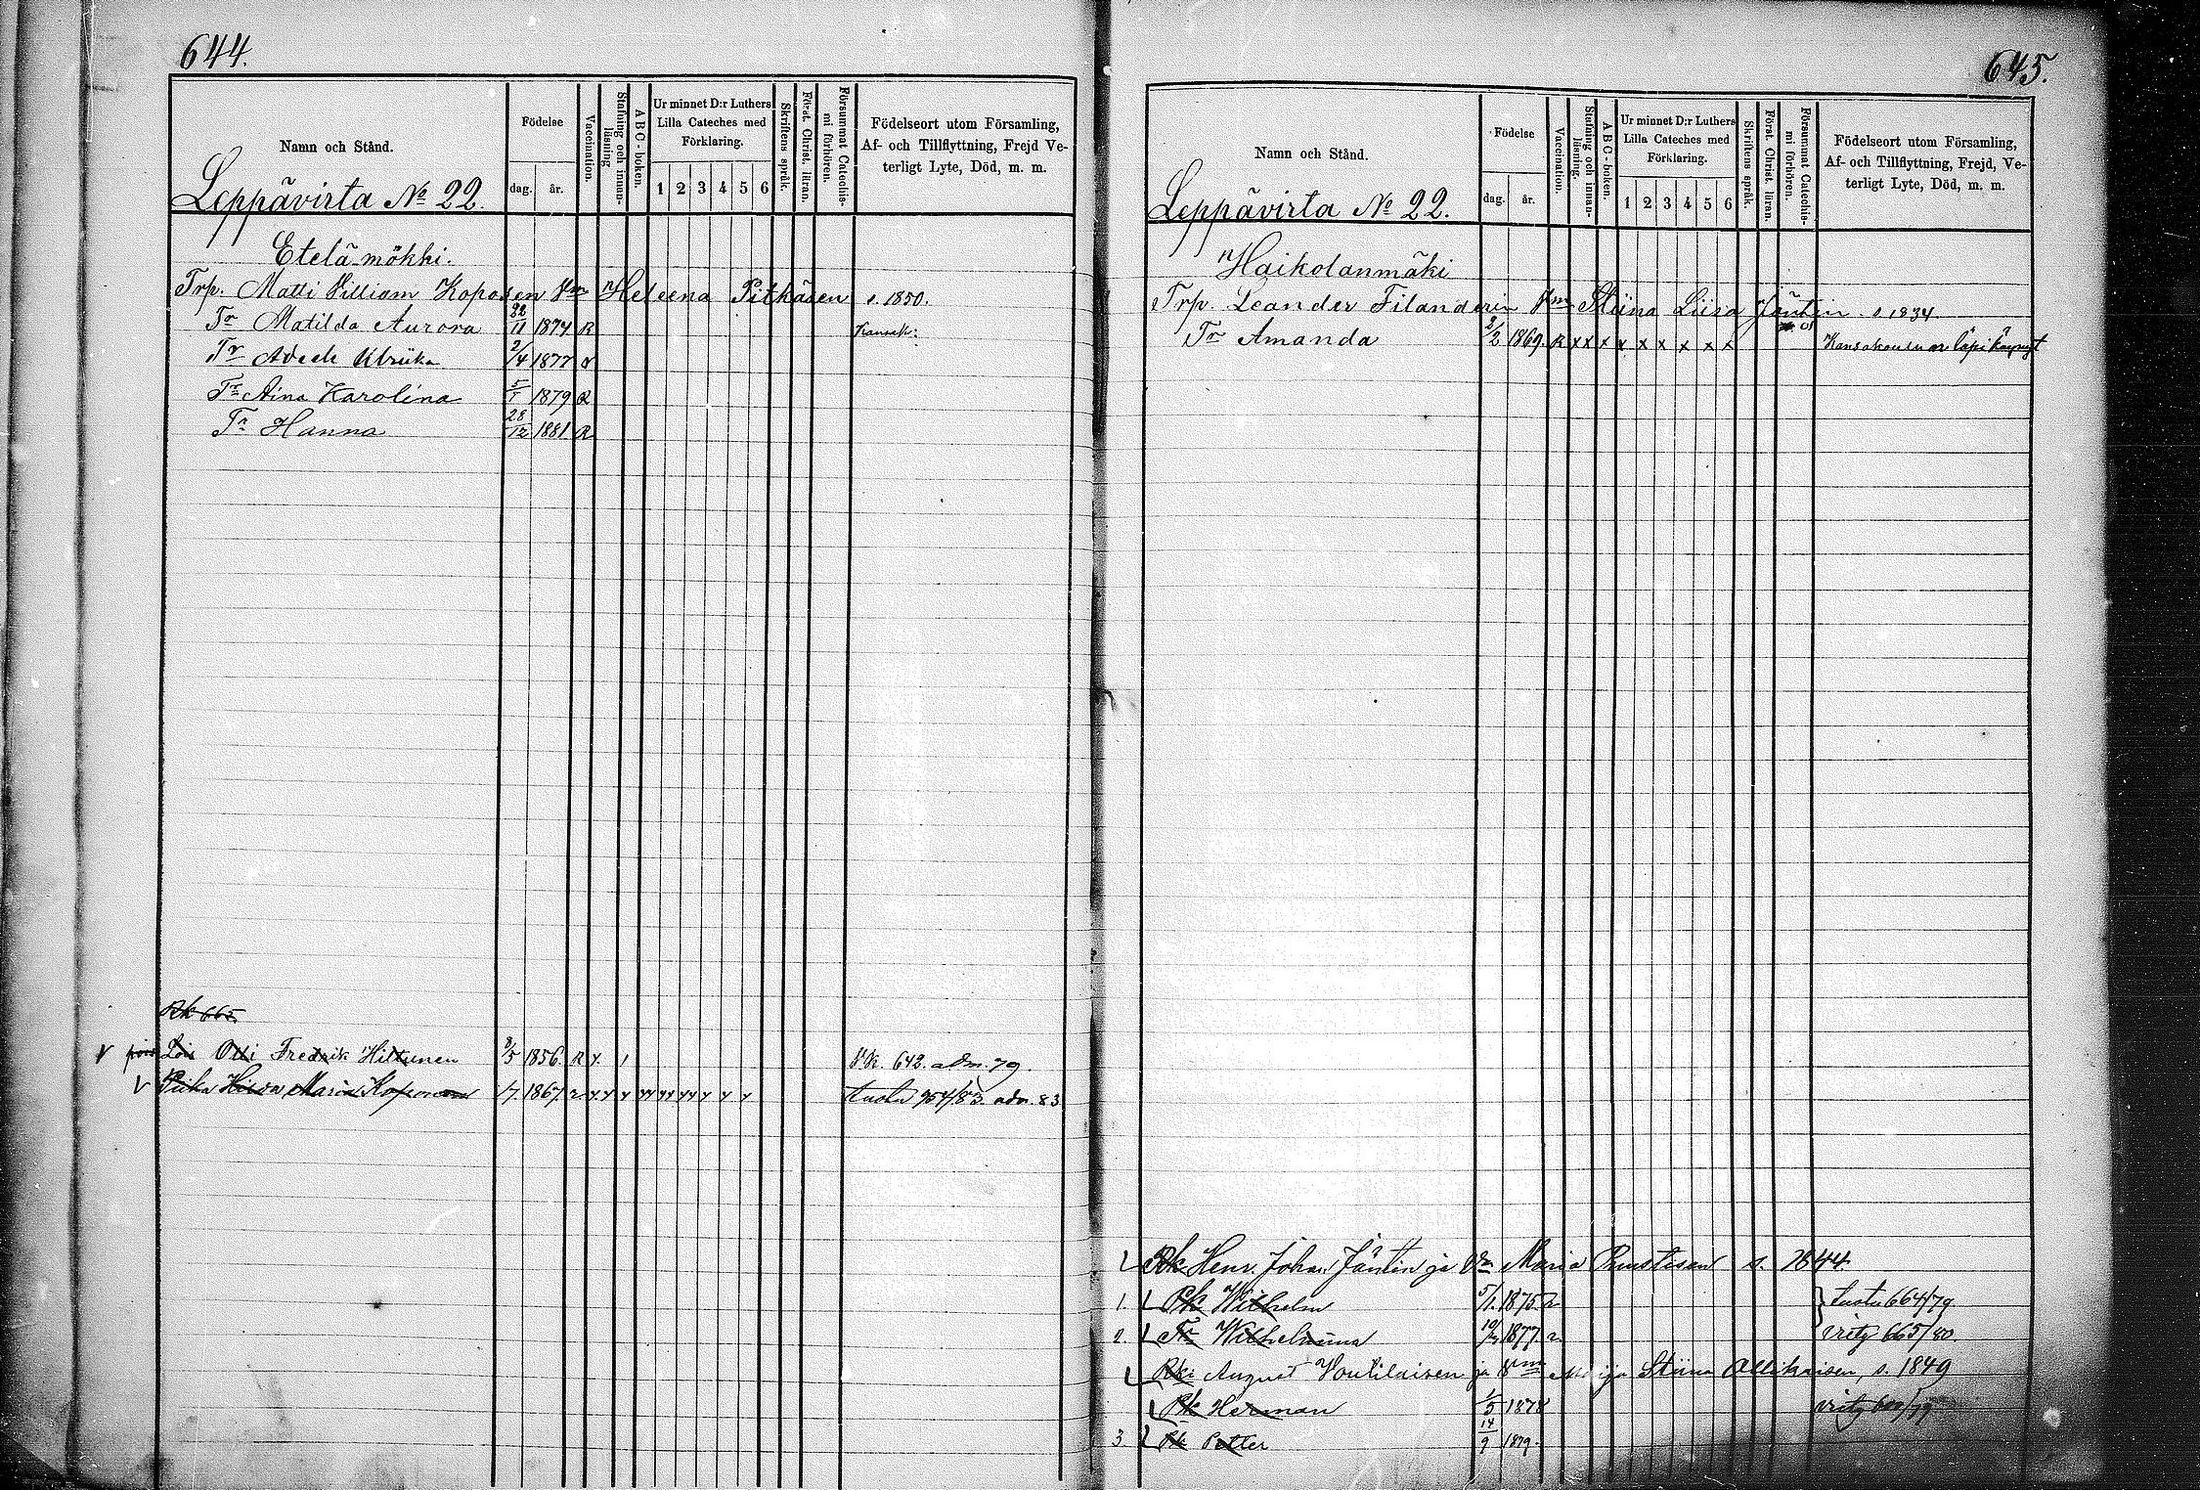 644.
Namn och Stånd.
Födelse
dag.
år.
Vaccination.
Stafning och innanläsning
ABC-boken.
Ur minnet D:r Luthers
Lilla Cateches med
Förklaring.
1 2 3 4 5 6
Skriftens språk.
Först. Christ. läran.
Försummat Catechismi förhören.
Födelseort utom Församling,
Af- och Tillflyttning, Frejd Ve-
terligt Lyte, Död, m. m.
Leppävirta No 22.
Etelä-mökki.
Trp. Matti Villiam Koposen Vm Heleena Pitkäsen s. 1850.
Tr Matilda Aurora 22/11 1874 R Kansak:
Tr Adech Ulriika 2/4 1877
Tr Aina Karolina 5/1 1879 R
Tr Hanna 28/12 1881 R
Rk 665
Lois Otti Fredrik Hiltunen 8/5 1856. R x. 1 Rk. 642. adm. 79.
Piika Hilda Maria Koponen 1/7 1867 954/83. adm. 83
645.
Namn och Stånd.
Födelse
dag.
år.
Vaccination.
Stafning och innanläsning.
ABC-boken.
Ur minnet D:r Luthers
Lilla Cateches med
Förklaring.
1 2 3 4 5 6
Skriftens språk.
Först. Christ. läran.
Försummat Catechismi förhören.
Födelseort utom Församling,
Af- och Tillflyttning, Frejd, Ve-
terligt Lyte, Död, m. m.
Leppävirta No 22.
Haikolanmäki
Trp. Leander Filanderin Vm Stiina Liisa Jäntin s. 1834
Tr Amanda 2/2 1869. R x x x x x x x x x Kansakoulun on läpi käynyt
Rk Henr. Johan Jäntin ja Vm Maria Ruustisen s. 1844
1. Pk Wilhelm 5/1. 1875. 664/79
2. Tr Wilhelmiina 1877. 665/80
Rki August Voutilaisen ja Vm Maija Stiina Ollikaisen, s. 1849
Pk Herman 1/5 1878
3. Pk Petter 14/9 1879.